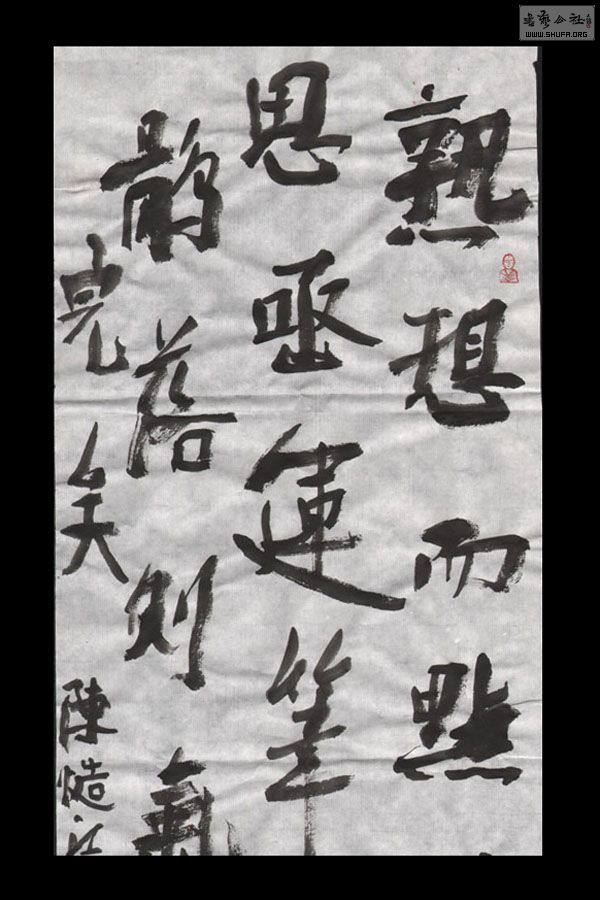 書藝公社
WWW.SHUFA.ORG
熟想而黙
思亟運筆
鶻落則氣
完矣
陳